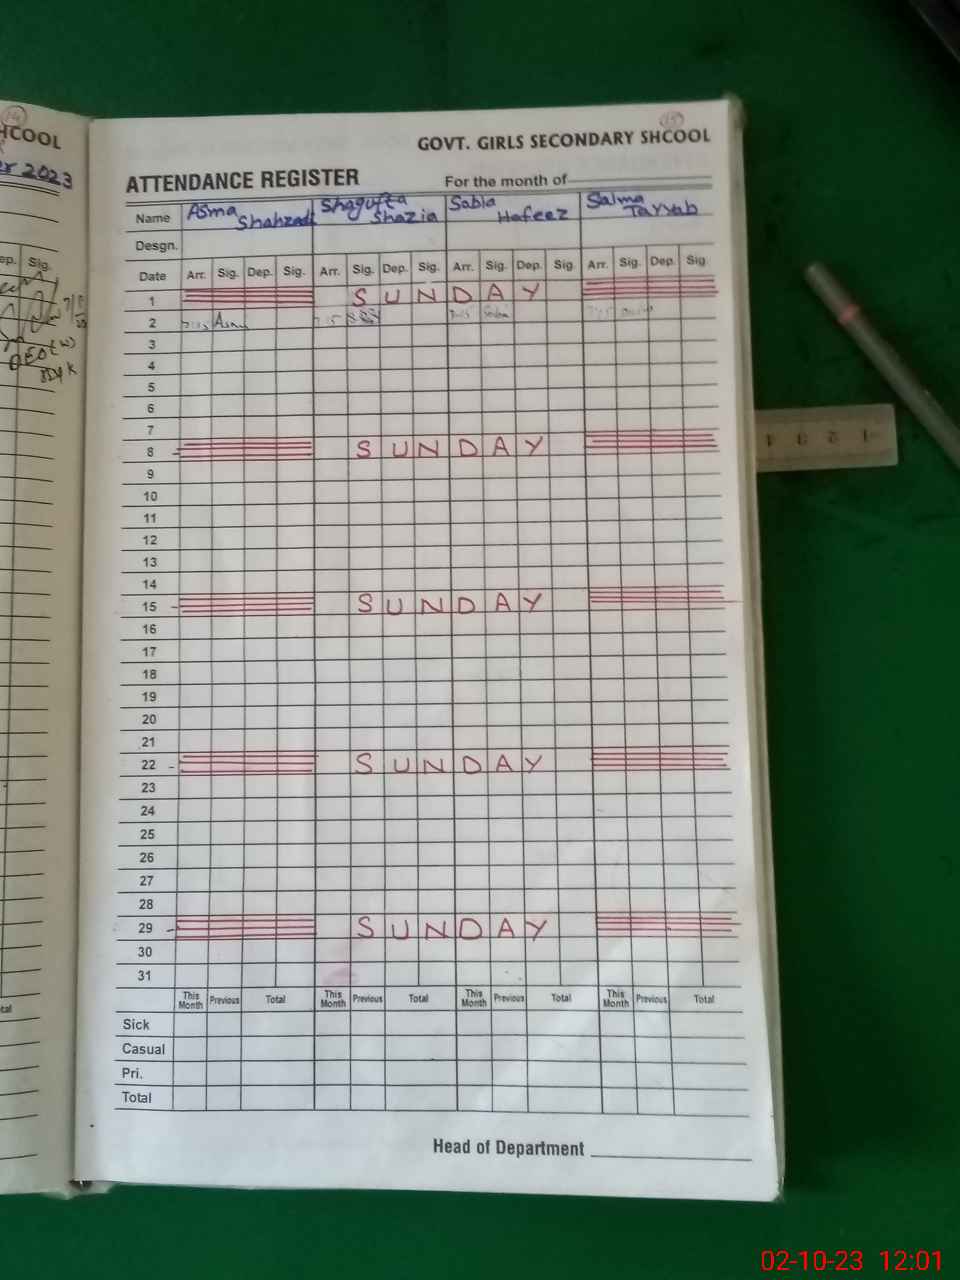 14
HCOOL
er 2023
ep. Sig.
DEO (W)
tal
15
GOVT. GIRLS SECONDARY SHCOOL
ATTENDANCE REGISTER For the month of
Name Asma Shahzadi Shagufta Shazia Sabla Hafeez Salma Tayyab
Desgn.
Date Arr. Sig. Dep. Sig. Arr. Sig. Dep. Sig. Arr. Sig. Dep. Sig Arr. Sig. Dep. Sig
1 SUNDAY
2 7:15 Asma 7:15 7:15 7:15
3
4
5
6
7
8 SUNDAY
9
10
11
12
13
14
15 SUNDAY
16
17
18
19
20
21
22 SUNDAY
23
24
25
26
27
28
29 SUNDAY
30
31
This Month Previous Total This Month Previous Total This Month Previous Total This Month Previous Total
Sick
Casual
Pri.
Total
Head of Department
02-10-23 12:01